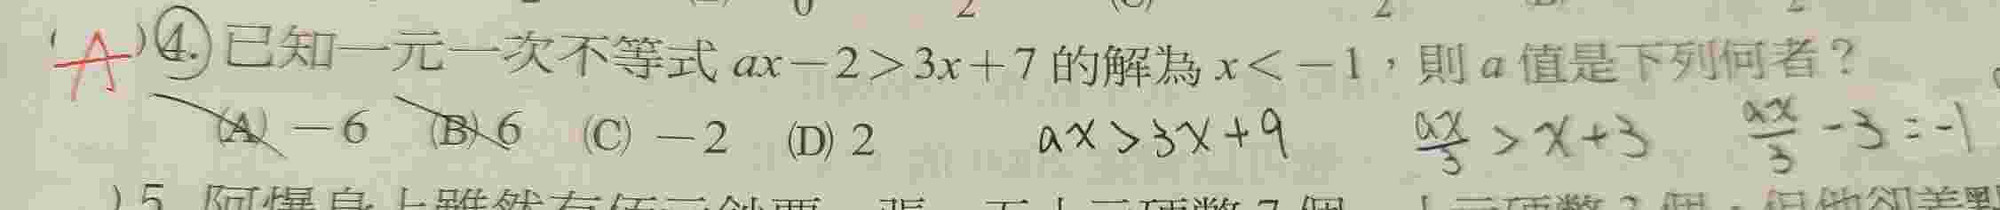 (A)4. 已知一元一次不等式 ax－2＞3x＋7 的解為 x＜－1，則 a 值是下列何者？
(A) －6 (B) 6 (C) －2 (D) 2 ax > 3x + 9 ax/3 > x + 3 ax/3 - 3 = -1
)5.